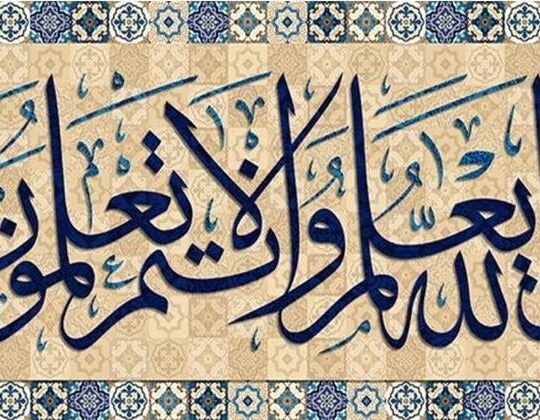 الله يعلم وأنتم لا تعلمون